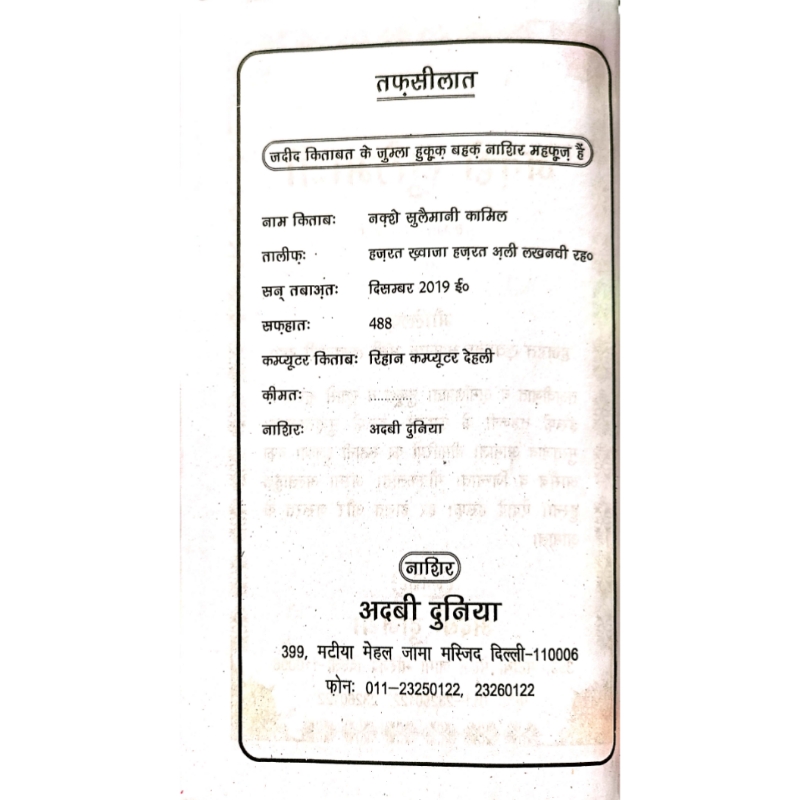 तफ़सीलात
जदीद किताबत के जुम्ला हुकूक़ बहक़ नाशिर महफूज़ हैं
नाम किताबः नक़्शे सुलैमानी कामिल
तालीफ़ः हज़रत ख़्वाजा हज़रत अ़ली लखनवी रह०
सन् तबाअ़तः दिसम्बर 2019 ई०
सफ़्हातः 488
कम्प्यूटर किताबः रिहान कम्प्यूटर देहली
क़ीमतः ............
नाशिरः अदबी दुनिया
नाशिर
अदबी दुनिया
399, मटीया मेहल जामा मस्जिद दिल्ली-110006
फ़ोनः 011-23250122, 23260122